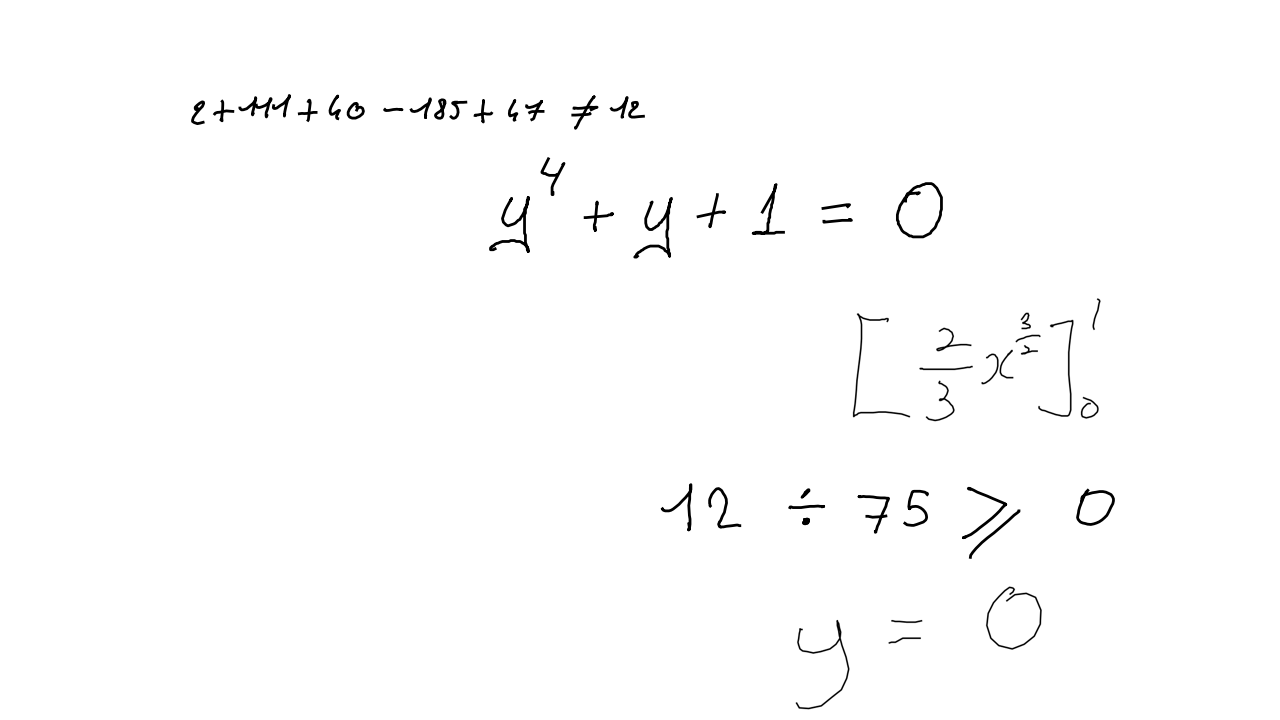 2+111+40-185+47≠12
y⁴+y+1=0
[2/3 x^(3/2)]₀¹
12÷75⩾0
y=0